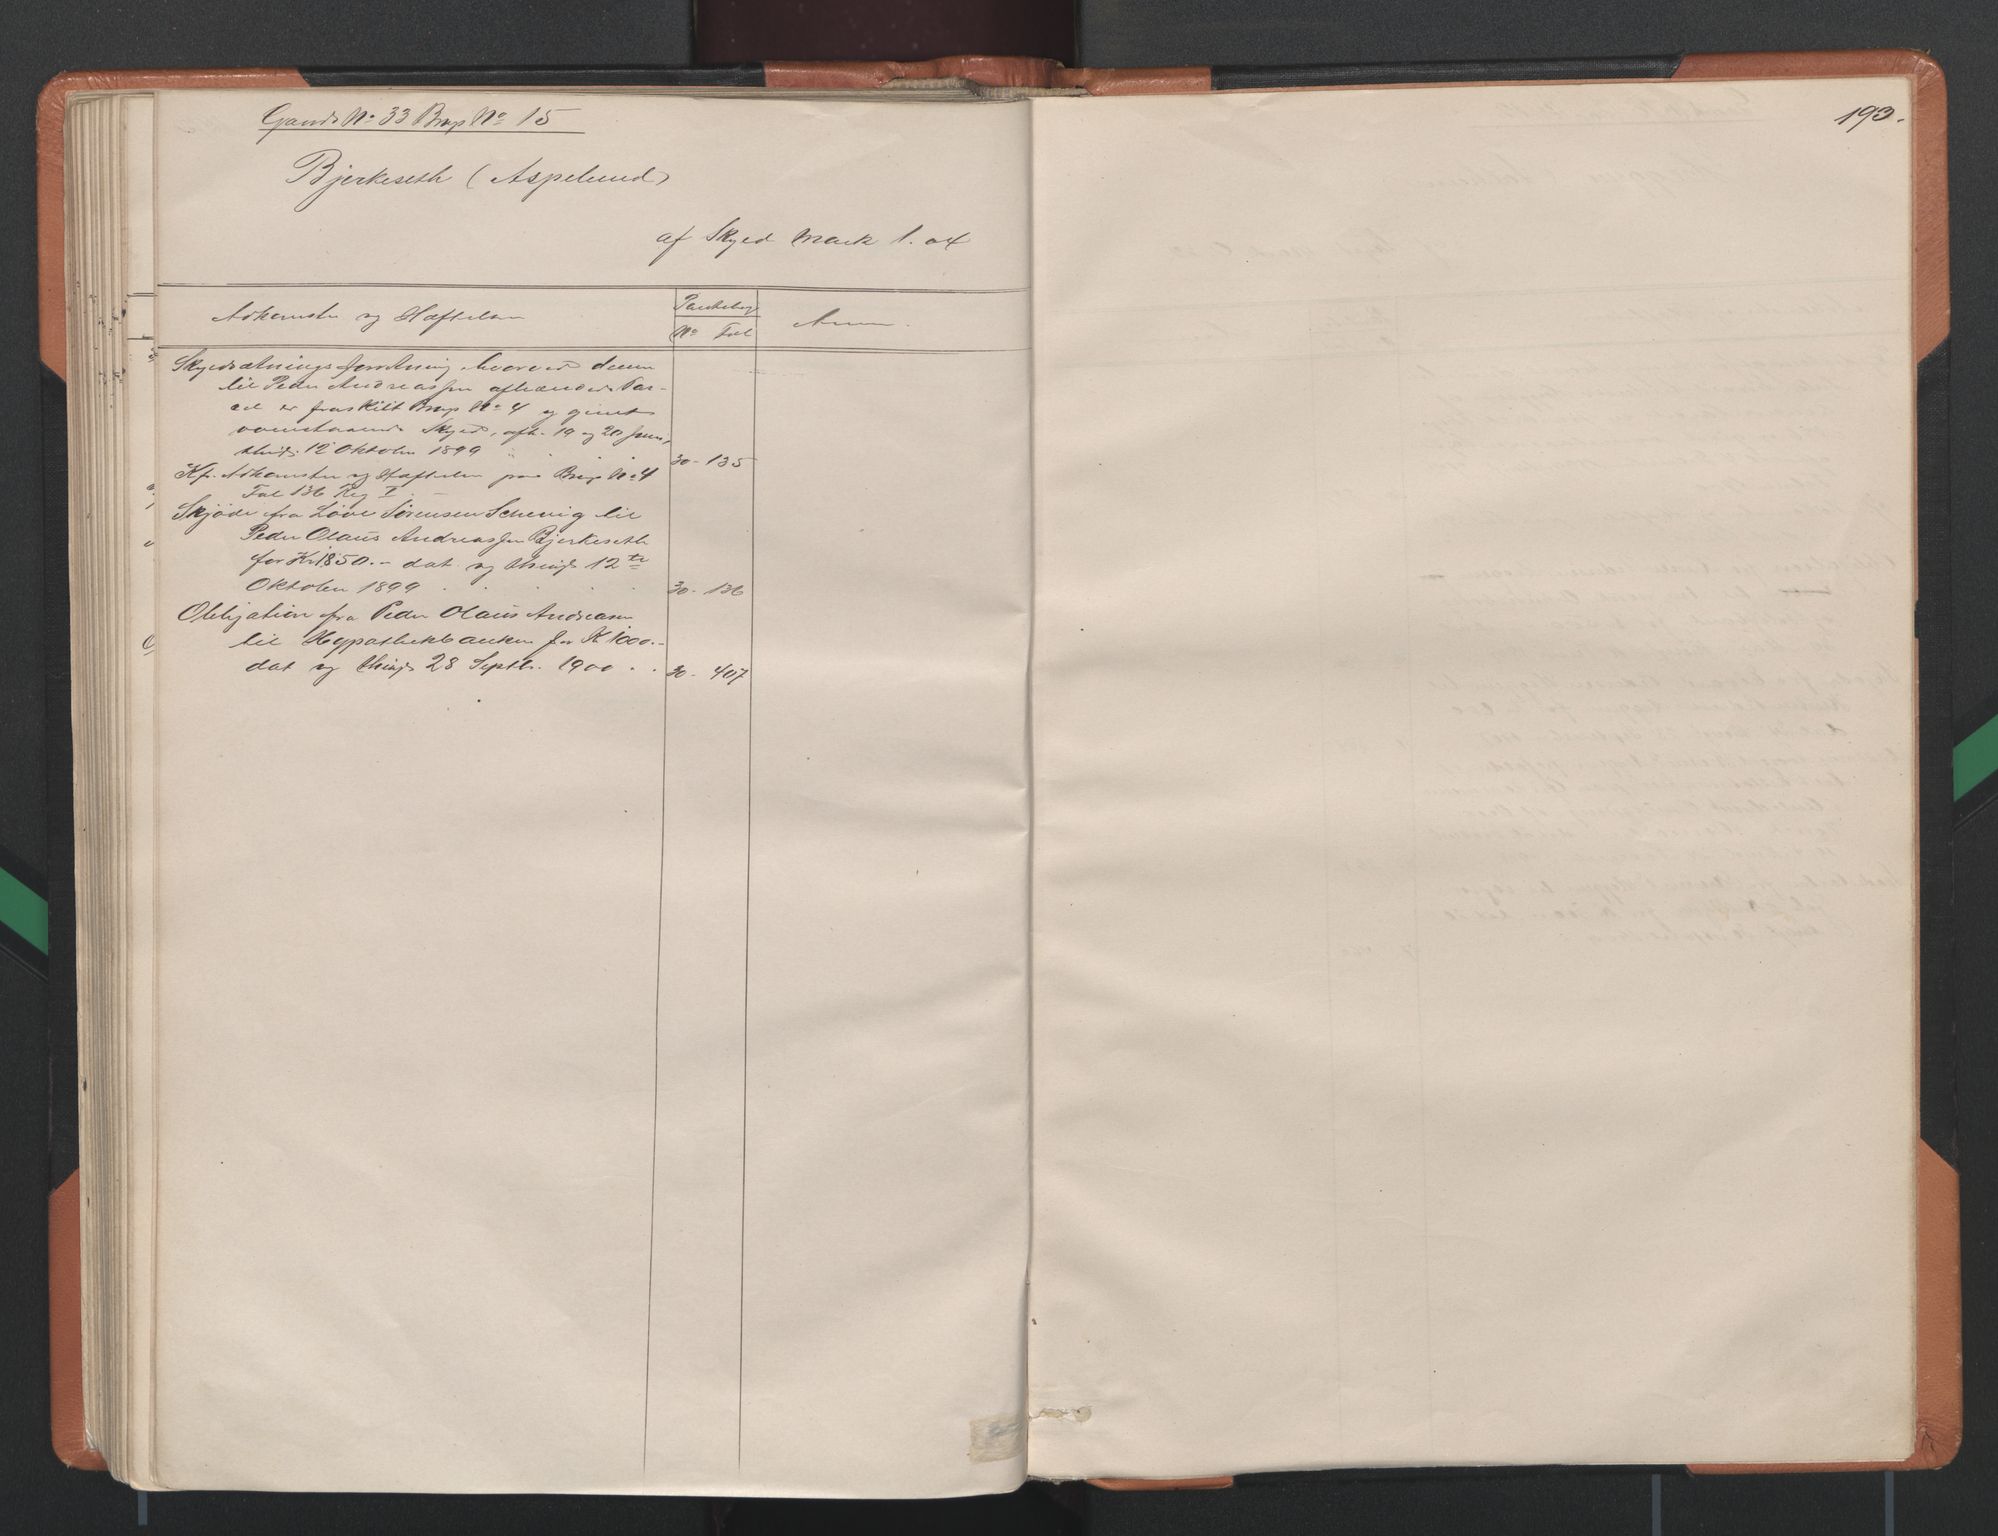 Gaards No 33 Brugs No 15
Bjerkeseth (Aspelund)
af Skyld Mark 1.04
Adkomster og Hæftelser
Pantebog
No Fol
Anm.
Skyldsætningsforretning, hvorved denne
til Peder Andreassen afhændede Par-
cel er fraskilt Brugs No 4 og givet
ovenstaaende Skyld, afh. 19 og 20 Juni,
thingl. 12 Oktober 1899 30 - 135
Kfr. Adkomster og Hæftelser paa Brugs No 4
Fol 136 Reg I.
Skjøde fra Løve Sørensen Schevig til
Peder Olaus Andreassen Bjerkeseth
for Kr 1850.- dat. og thingl. 12te
Oktober 1899 . . . . 30 - 136
Obligation fra Peder Olaus Andreasen
til Hypothekbanken for Kr 1000.-
dat og thingl 28 Septbr. 1900 . . 30 - 407
193.